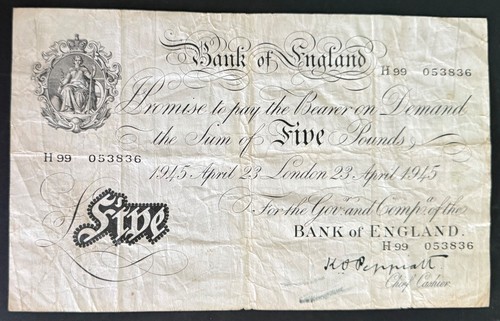 Bank of England
H 99 053836
I Promise to pay the Bearer on Demand
the Sum of Five Pounds
H 99 053836
1945 April 23 London 23 April 1945
For the Govr. and Compa. of the
£Five
BANK of ENGLAND.
H 99 053836
K O Peppiatt
Chief Cashier